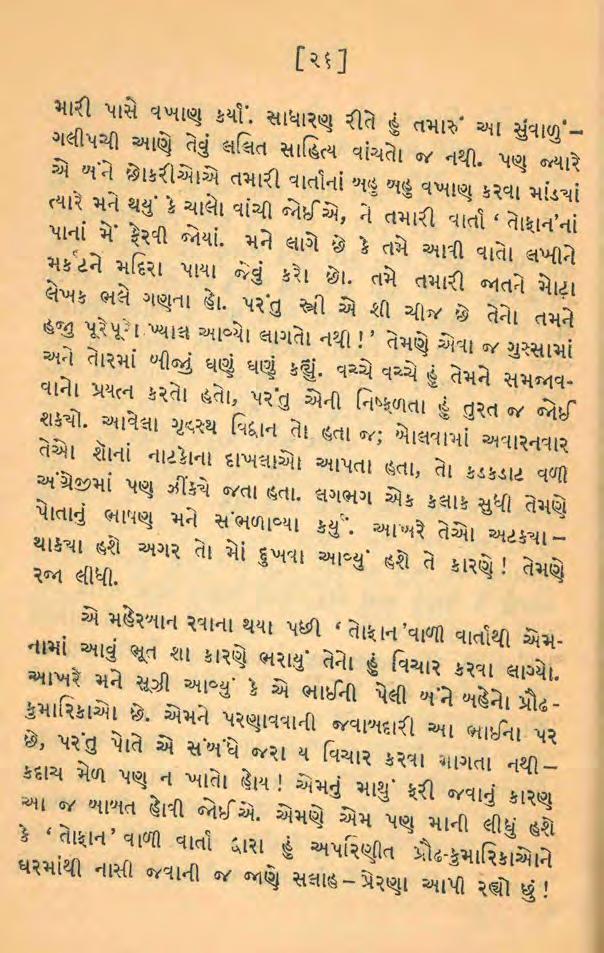 [૨૬]
મારી પાસે વખાણ કર્યાં. સાધારણ રીતે હું તમારું આ સુંવાળું–
ગલીપચી આણે તેવું લલિત સાહિત્ય વાંચતો જ નથી. પણ જ્યારે
એ બંને છોકરીઓએ તમારી વાર્તાનાં બહુ બહુ વખાણ કરવા માંડ્યાં
ત્યારે મને થયું કે ચાલો વાંચી જોઈએ, ને તમારી વાર્તા ‘ તોફાન’નાં
પાનાં મેં ફેરવી જોયાં. મને લાગે છે કે તમે આવી વાતો લખીને
મર્કટને મદિરા પાયા જેવું કરો છો. તમે તમારી જાતને મોટા
લેખક ભલે ગણતા હો. પરંતુ સ્ત્રી એ શી ચીજ છે તેનો તમને
હજી પૂરેપૂરો ખ્યાલ આવ્યો લાગતો નથી ! ’ તેમણે એવા જ ગુસ્સામાં
અને તોરમાં બીજું ઘણું ઘણું કહ્યું. વચ્ચે વચ્ચે હું તેમને સમજાવ-
વાનો પ્રયત્ન કરતો હતો, પરંતુ એની નિષ્ફળતા હું તુરત જ જોઈ
શક્યો. આવેલા ગૃહસ્થ વિદ્વાન તો હતા જ; બોલવામાં અવારનવાર
તેઓ શૉનાં નાટકોના દાખલાઓ આપતા હતા, તો કડકડાટ વળી
અંગ્રેજીમાં પણ ઝીંક્યે જતા હતા. લગભગ એક કલાક સુધી તેમણે
પોતાનું ભાષણ મને સંભળાવ્યા કર્યું. આખરે તેઓ અટક્યા –
થાક્યા હશે અગર તો મોં દુખવા આવ્યું હશે તે કારણે ! તેમણે
રજા લીધી.
એ મહેરબાન રવાના થયા પછી ‘ તોફાન ’વાળી વાર્તાથી એમ-
નામાં આવું ભૂત શા કારણે ભરાયું તેનો હું વિચાર કરવા લાગ્યો.
આખરે મને સૂઝી આવ્યું કે એ ભાઈની પેલી બંને બહેનો પ્રૌઢ-
કુમારિકાઓ છે. એમને પરણાવવાની જવાબદારી આ ભાઈના પર
છે, પરંતુ પોતે એ સંબંધે જરા ય વિચાર કરવા માગતા નથી –
કદાચ મેળ પણ ન ખાતો હોય ! એમનું માથું ફરી જવાનું કારણ
આ જ બાબત હોવી જોઈએ. એમણે એમ પણ માની લીધું હશે
કે ‘ તોફાન’ વાળી વાર્તા દ્વારા હું અપરિણીત પ્રૌઢ-કુમારિકાઓને
ઘરમાંથી નાસી જવાની જ જાણે સલાહ – પ્રેરણા આપી રહ્યો છું !